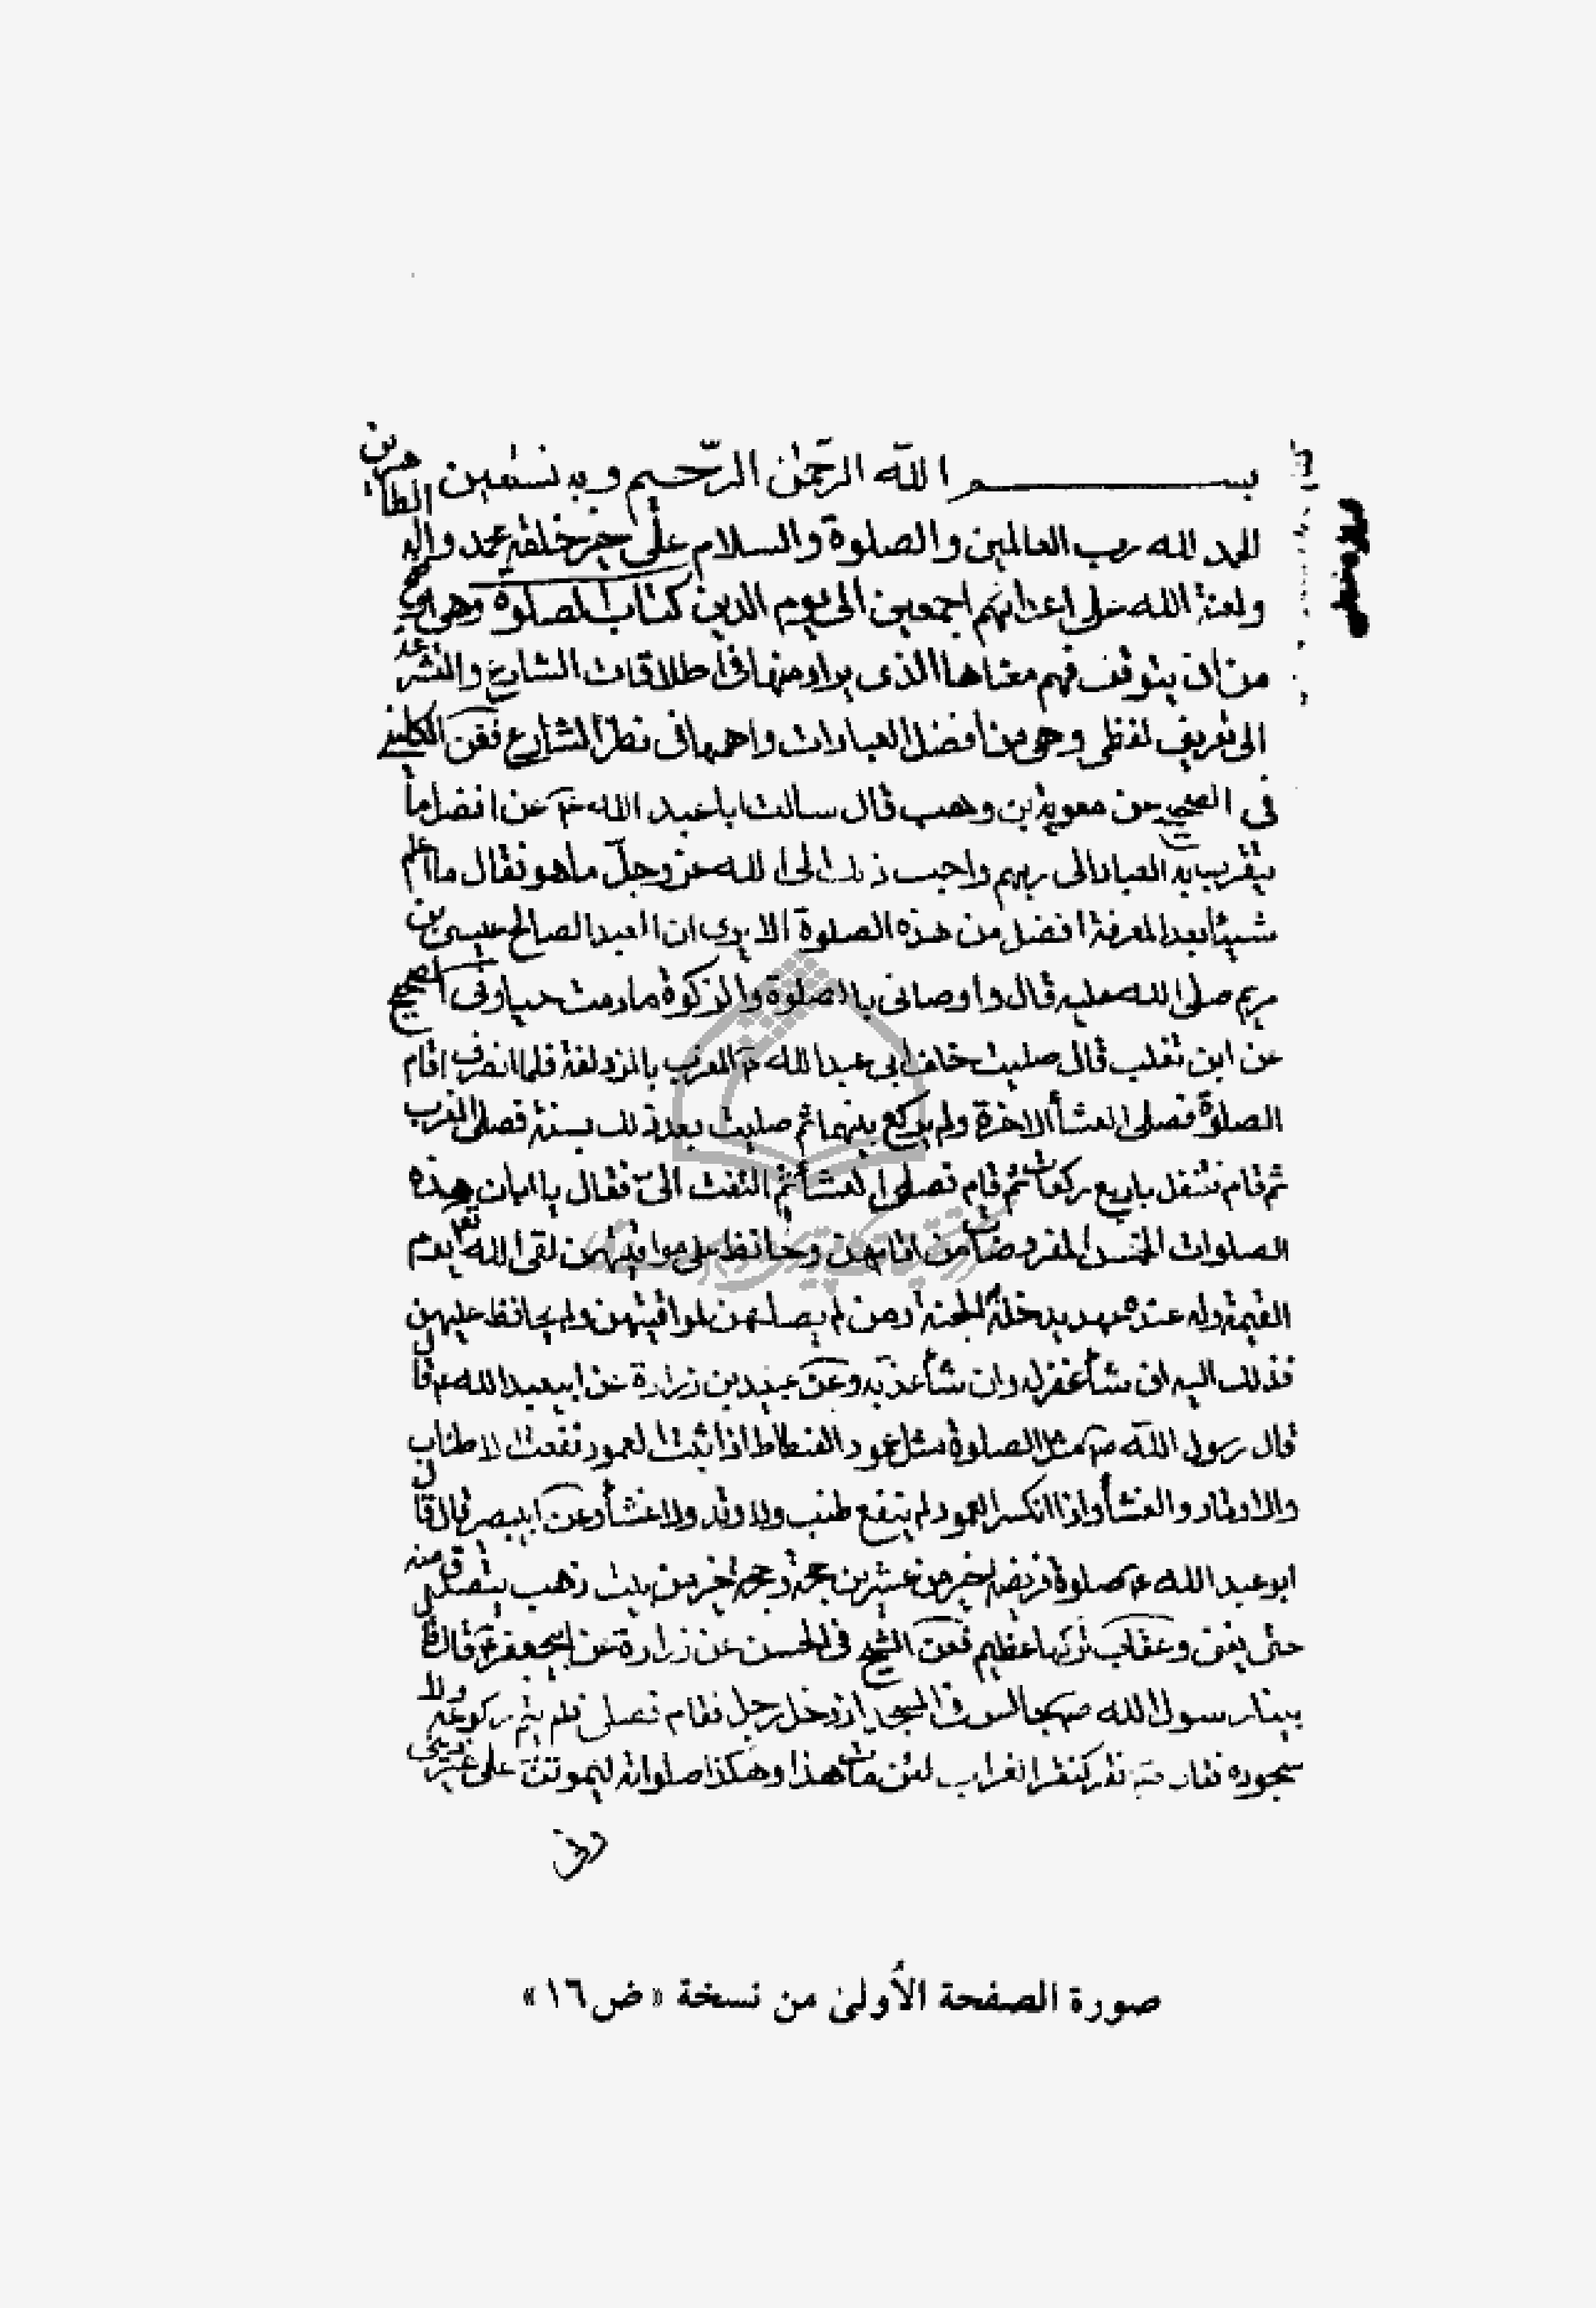 بسم الله الرحمن الرحيم وبه نستعين
الحمد لله رب العالمين والصلوة والسلام على خير خلقه محمد وآله الطاهرين
ولعنة الله على اعدائهم اجمعين الى يوم الدين كتاب الصلوة وهي
من ان يتوقف فهم معناها الذى يراد منها فى اطلاقات الشارع والمتشرعة
الى تعريف لفظى وهى من أفضل العبادات واهمها فى نظر الشارع فعن الكلينى
فى الصحيح عن معوية بن وهب قال سالت ابا عبد الله عم عن افضل ما
يتقرب به العباد الى ربهم واحب ذلك الى الله عز وجلّ ما هو فقال ما اعلم
شيئا بعد المعرفة افضل من هذه الصلوة الا يرى ان العبد الصالح عيسى بن
مريم صلى الله عليه قال وأوصانى بالصلوة والزكوة ما دمت حيا وفى الصحيح
عن ابن تغلب قال صليت خلف ابى عبد الله م المغرب بالمزدلفة فلما انصرف اقام
الصلوة فصلى العشأ الاخرة ولم يركع بينهما ثم صليت بعد ذلك بسنة فصلى المغرب
ثم قام فتنفل باربع ركعات ثم قام فصلى العشأ ثم التفت الىّ فقال يا ابان هذه
الصلوات الخمس المفروضات من اقامهن وحافظ على مواقيتهن لقى الله تعا يوم
القيمة وله عنده عهد يدخله الجنة ومن لم يصلهن لمواقيتهن ولم يحافظ عليهن
فذلك اليه ان شأ غفر له وان شأ عذبه وعن عبيد بن زرارة عن ابيعبد الله عم قال
قال رسول الله ص مثل الصلوة مثل عمود الفسطاط اذا ثبت العمود نفعت الاطناب
والاوتاد والغشأ واذا انكسر العمود لم ينفع طنب ولا وتد ولا غشأ وعن ابيبصير قال قال
ابو عبد الله عم صلوة فريضة خير من عشرين حجة وحجة خير من بيت ذهب يتصدق منه
حتى يفنى وعقاب تركها عظيم فعن الشيخ فى الحسن عن زرارة عن ابيجعفر عم قال
بينا رسول الله ص جالس فى المسجد اذ دخل رجل فقام فصلى فلم يتم ركوعه ولا
سجوده فقال ص نقر كنقر الغراب لئن مات هذا وهكذا صلواته ليموتن على غير دينى
وفى
صورة الصفحة الأولىٰ من نسخة «ض١٦»